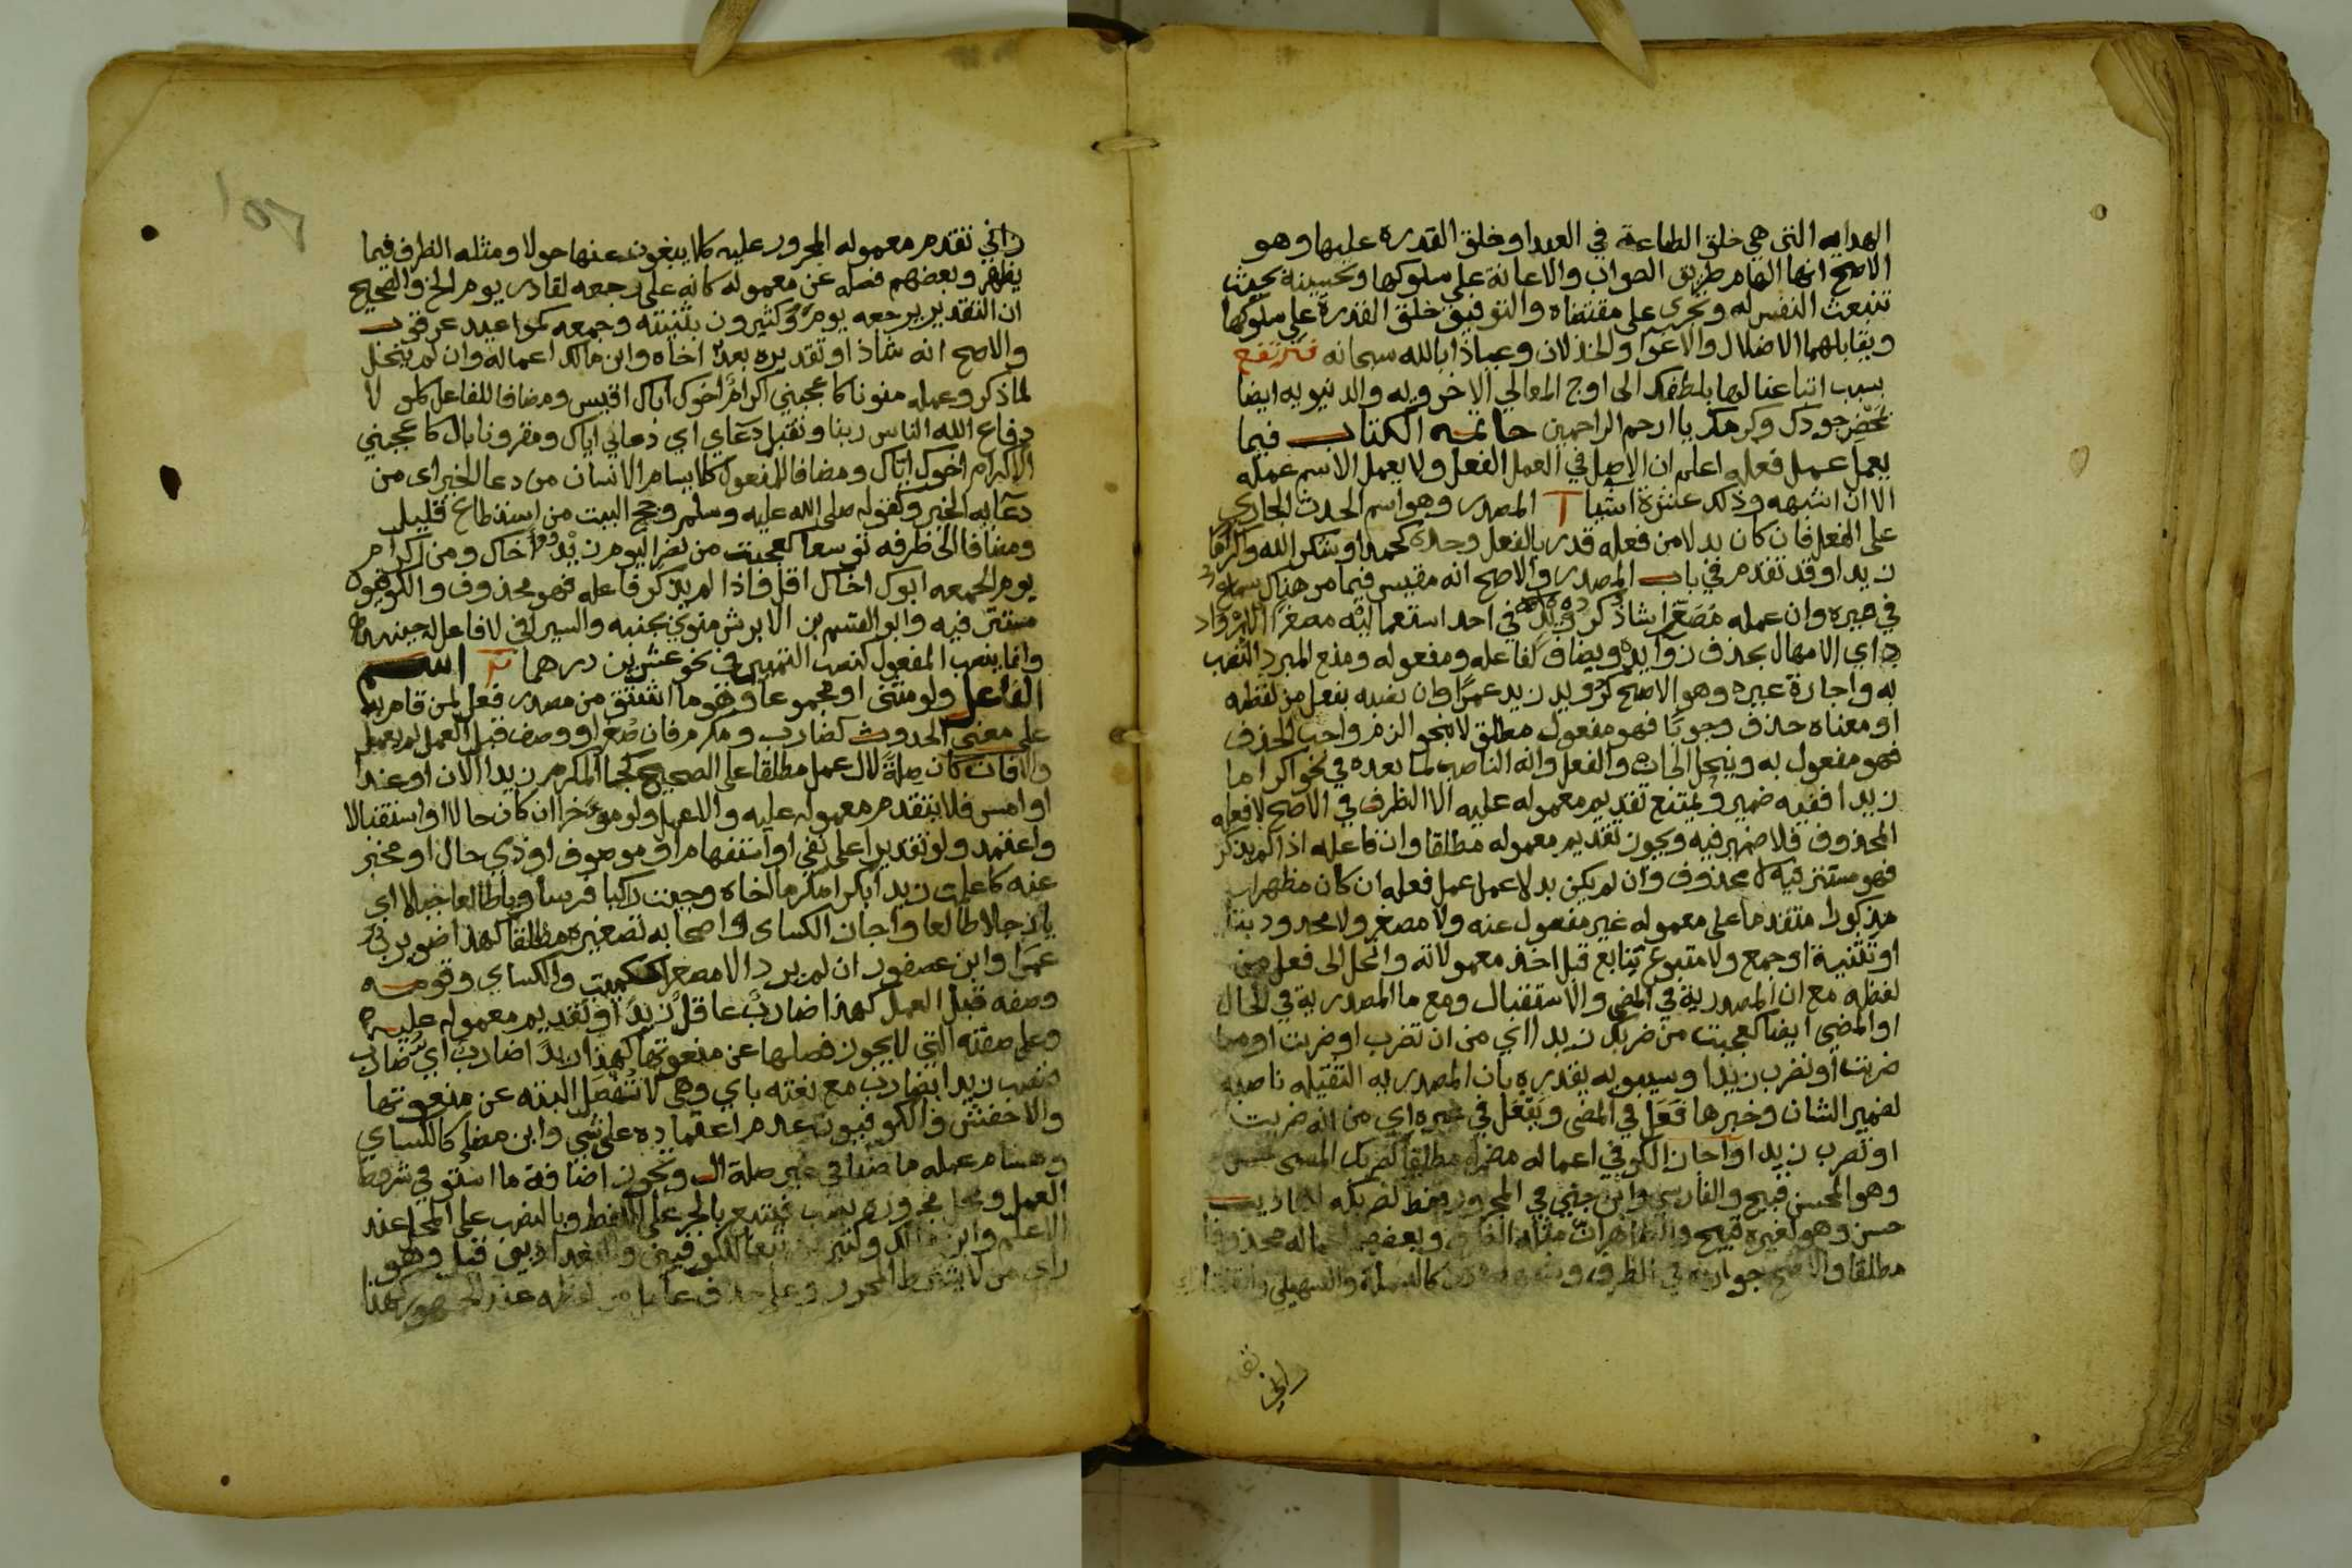 الهدايه التي هي خلق الطاعة في العبد او خلق القدره عليها وهو
الاصح انها الهام طريق الصواب والاعانة على سلوكها وتحسينه بحيث
تنبعث النفس له وتجري على مقتضاه والتوفيق خلق القدرة على سلوكها
ويقابلهما الاضلال والاغوا والخذلان وعياذا بالله سبحانه فترتفع
بسبب اتباعنا لها بلطفك الى اوج المعالي الاخرويه والدنيويه ايضا
بمحض جودك وكرمك يا ارحم الراحمين خاتمه الكتاب فيما
يعمل عمل فعله اعلم ان الاصل في العمل الفعل ولا يعمل الاسم عمله
الا ان اشبهه وذلك عشرة اشيا آ المصدر وهو اسم الحدث الجاري
على الفعل فان كان بدلا من فعله قدر بالفعل وحده كحمدا وشكرا لله واكراما
زيدا وقد تقدم في باب المصدر والاصح انه مقيس فيما من هناك سماع
في غيره وان عمله مصغرا شاذ كرويد في احد استعماليه مصغرا الارواد
اي الامهال بحذف زوايده ويضاف لفاعله ومفعوله ومنع المبرد النصب
به واجازة غيره وهو الاصح كرويد زيد عمرا وان نصبه بفعل من لفظه
او معناه حذف وجوبا فهو مفعول مطلق لا بنحو الزم واجب الحذف
فهو مفعول به وينحل الى ان والفعل وانه الناصب لما بعده في نحو اكراما
زيدا ففيه ضمير ويمتنع تقديم معموله عليه الا الظرف في الاصح لا فعله
المحذوف فلا ضمير فيه ويجوز تقديم معموله مطلقا وان فاعله اذا لم يذكر
فهو مستتر فيه لا محذوف وان لم يكن بدلا عمل عمل فعله ان كان مظهرا
مذكورا متقدما على معموله غير مفصول عنه ولا مصغر ولا محدود بتا
او تثنية او جمع ولا متبوع بتابع قبل اخذ معمولاته وانحل الى فعل من
لفظه مع ان المصدرية في المضي والاستقبال ومع ما المصدرية في الحال
او المضي ايضا كعجبت من ضربك زيدا اي من ان تضرب او ضربت او مما
ضربت او تضرب زيدا وسيبويه يقدره بان المصدريه الثقيله ناصبه
لضمير الشان وخبرها فعل في المضي ويفعل في غيره اي من انه ضربت
او تضرب زيدا واجاز الكوفي اعماله مضمرا مطلقا كضربك المسي حسن
وهو المحسن قبيح والفارسي وابن جني في المجرور فقط لضربكه
حسن وهو لغيره قبيح
مطلقا والاصح جوازه في الظرف كالبسملة والسهيلي
راني تقدم معموله المجرور عليه كلا يبغون عنها حولا ومثله الظرف فيما
يظهر وبعضهم فصله عن معموله كانه على رجعه لقادر يوم الخ والصحيح
ان التقدير يرجعه يوم وكثيرون بتثنيته وجمعه كمواعيد عرقوب
والاصح انه شاذ او تقديره بعده اخاه وابن مالك اعماله وان لم ينحل
لما ذكر وعمله منونا كاعجبني اكرام اخوك اباك اقيس ومضافا للفاعل كلولا
دفاع الله الناس ربنا وتقبل دعاي اي دعاي اياك ومقرونا بال كاعجبني
الاكرام اخوك اباك ومضافا للمفعول كلا يسام الانسان من دعا الخير اى من
دعايه الخير وكقوله صلى الله عليه وسلم وحج البيت من استطاع قليل
ومضافا الى ظرفه توسعا كعجبت من نصر اليوم زيد اخاك ومن اكرام
يوم الجمعه ابوك اخاك اقل فاذا لم يذكر فاعله فهو محذوف والكوفيون
مستتر فيه وابو القسم بن الابرش منوي بجنبه والسيرافي لا فاعل له حينئذ
وانما ينصب المفعول كنصب التمييز في نحو عشرين درهما ب اسم
الفاعل ولو مثنى او مجموعا وهو ما اشتق من مصدر فعل لمن قام به
على معنى الحدوث كضارب ومكرم فان صغر او وصف قبل العمل لم يعمل
والا فان كان صلة لال عمل مطلقا على الصحيح كجا المكرم زيدا الان او غدا
او امس فلا يتقدم معموله عليه والا عمل ولو موخرا ان كان حالا او استقبالا
واعتمد ولو تقديرا على نفي او استفهام او موصوف او ذي حال او مخبر
عنه كاعلمت زيدا بكرا مكرما اخاه وجيت راكبا فرسا ويا طالعا جبلا اي
يا رجلا طالعا واجاز الكساي واصحابه تصغيره مطلقا كهذا ضويرب
عمرا وابن عصفور ان لم يرد الا مصغرا ككميت والكساي وقومه
وصفه قبل العمل كهذا ضارب عاقل زيدا او تقديم معموله عليه
وعلى صفته التي لا يجوز فصلها عن منعوتها كهذا زيدا ضارب اي ضارب
فنصب زيدا بضارب مع نعته باي وهي لا تفصل البته عن منعوتها
والاخفش والكوفيون عدم اعتماده على شي وابن مضا كالكساي
وهشام عمله ماضيا في غير صلة ال ويجوز اضافة ما استوفى شروط
العمل ومحل مجروره نصب فيتبع بالجر على اللفظ وبالنصب على المحل عند
الاعلم وابن مالك وكثيرين تبعا للكوفيين والبغداديين قيل وهو
راى من لا يشترط المحرز وعلى حذف عامل من لفظه عند الجمهور كهذا